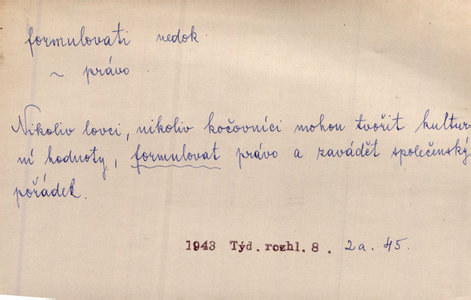 formulovati nedok
~ právo
Nikoliv lovci, nikoliv kočovníci mohou tvořit kultur-
ní hodnoty, formulovat právo a zavádět společenský
pořádek.
1943 Týd. rozhl. 8. 2a. 45.